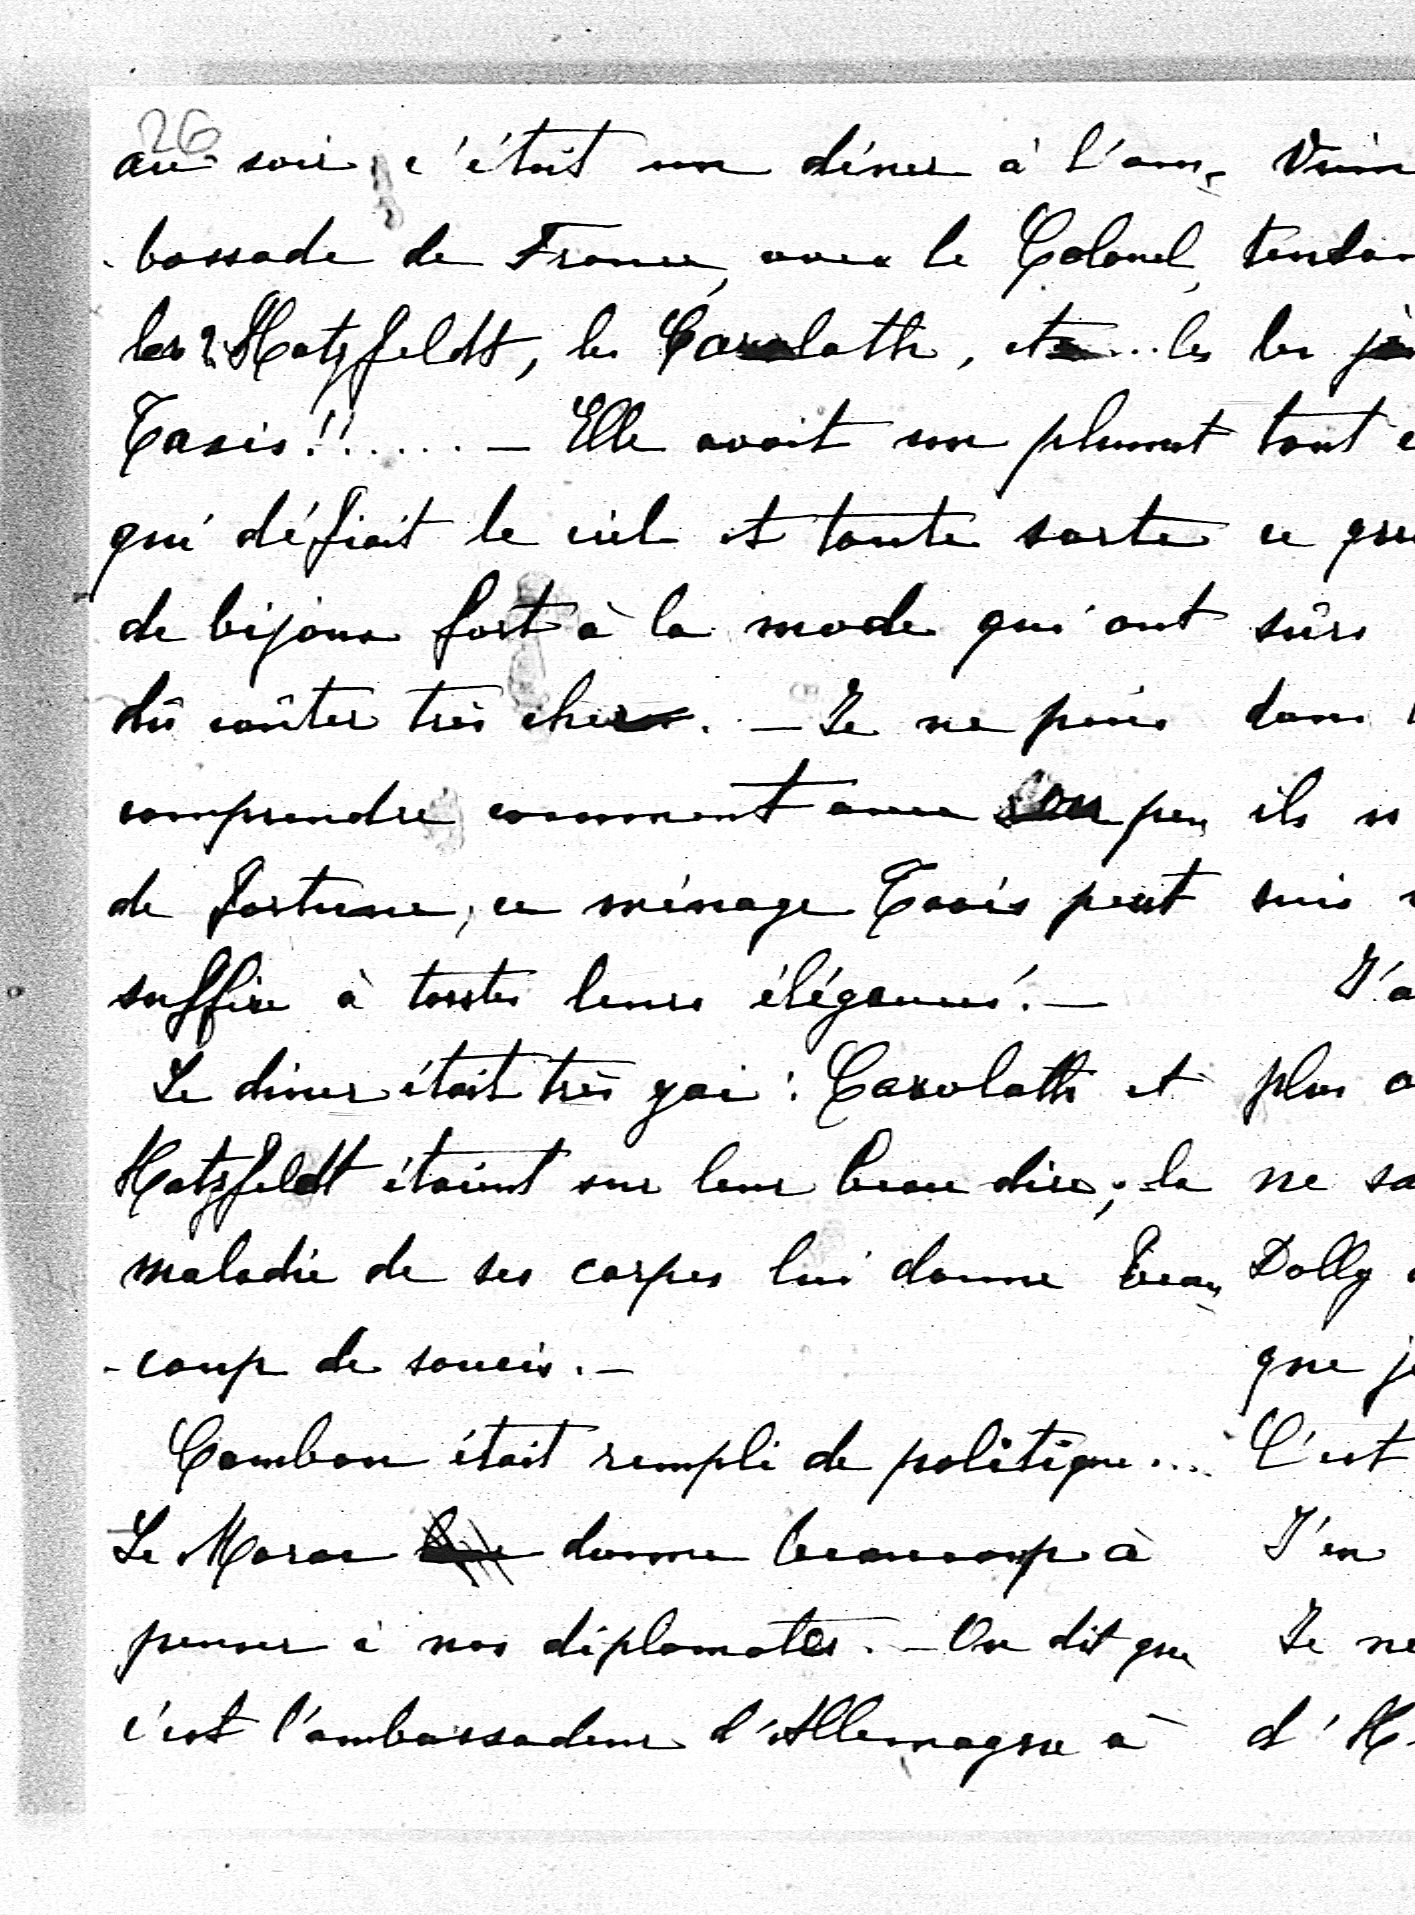 26
au soir, c'était un dîner à l'am-
-bassade de France, avec le Colonel,
les 2 Hatzfeldt, les Carolath, et ... les
Taxis!!..... — Elle avait un plumet
qui défiait le ciel et toute sorte
de bijoux fort à la mode qui ont
dû coûter très cher. — Je ne puis
comprendre comment avec peu
de fortune, ce ménage Taxis peut
suffire à toutes leurs élégances. —
Le dîner était très gai : Carolath et
Hatzfeldt étaient sur leur beau dire ; la
maladie de ses carpes lui donne beau
-coup de soucis. —
Cambon était rempli de politique...
Le Maroc donne beaucoup à
penser à nos diplomates. — On dit que
c'est l'ambassadeur d'Allemagne à
tout
ce
sûrs
dans
ils
suis
plus
ne
Dolly
que
C'est
J'en
Je ne